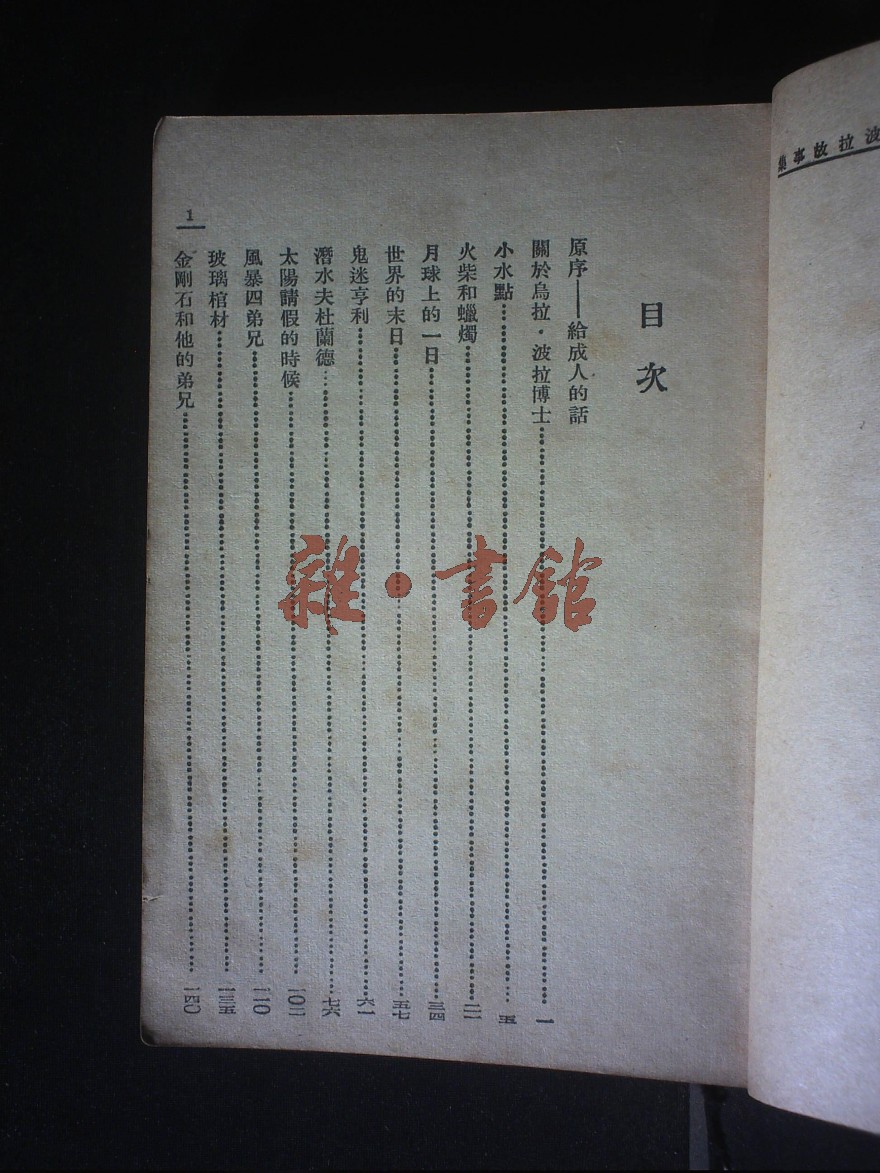 波拉故事集
目次
原序——給成人的話
關於烏拉·波拉博士……一
小水點……五
火柴和蠟燭……二二
月球上的一日……三四
世界的末日……五七
鬼迷亨利……六一
潛水夫杜蘭德……七六
太陽請假的時候……一〇二
風暴四弟兄……一二〇
玻璃棺材……一三五
金剛石和他的弟兄……一四〇
1
雜·書館